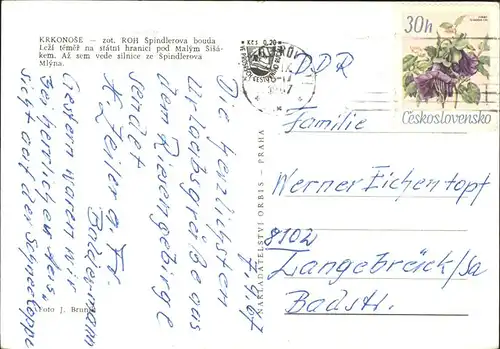 KRKONOŠE – zot. ROH Špindlerova bouda
Leží téměř na státní hranici pod Malým Šišá-
kem. Až sem vede silnice ze Špindlerova
Mlýna.
Kčs 0,20
30h
Československo
DDR
Familie
Werner Eichentopf
8102
Langebrück/Sa
Badstr.
7.9.67
Die herzlichsten
Urlaubsgrüße aus
dem Riesengebirge
sendet
K. Zeiler u. Fr.
Baldermann
Gestern waren wir
bei herrlichen
Sicht auf der Schneekoppe
NAKLADATELSTVÍ ORBIS – PRAHA
Foto J. Brunák